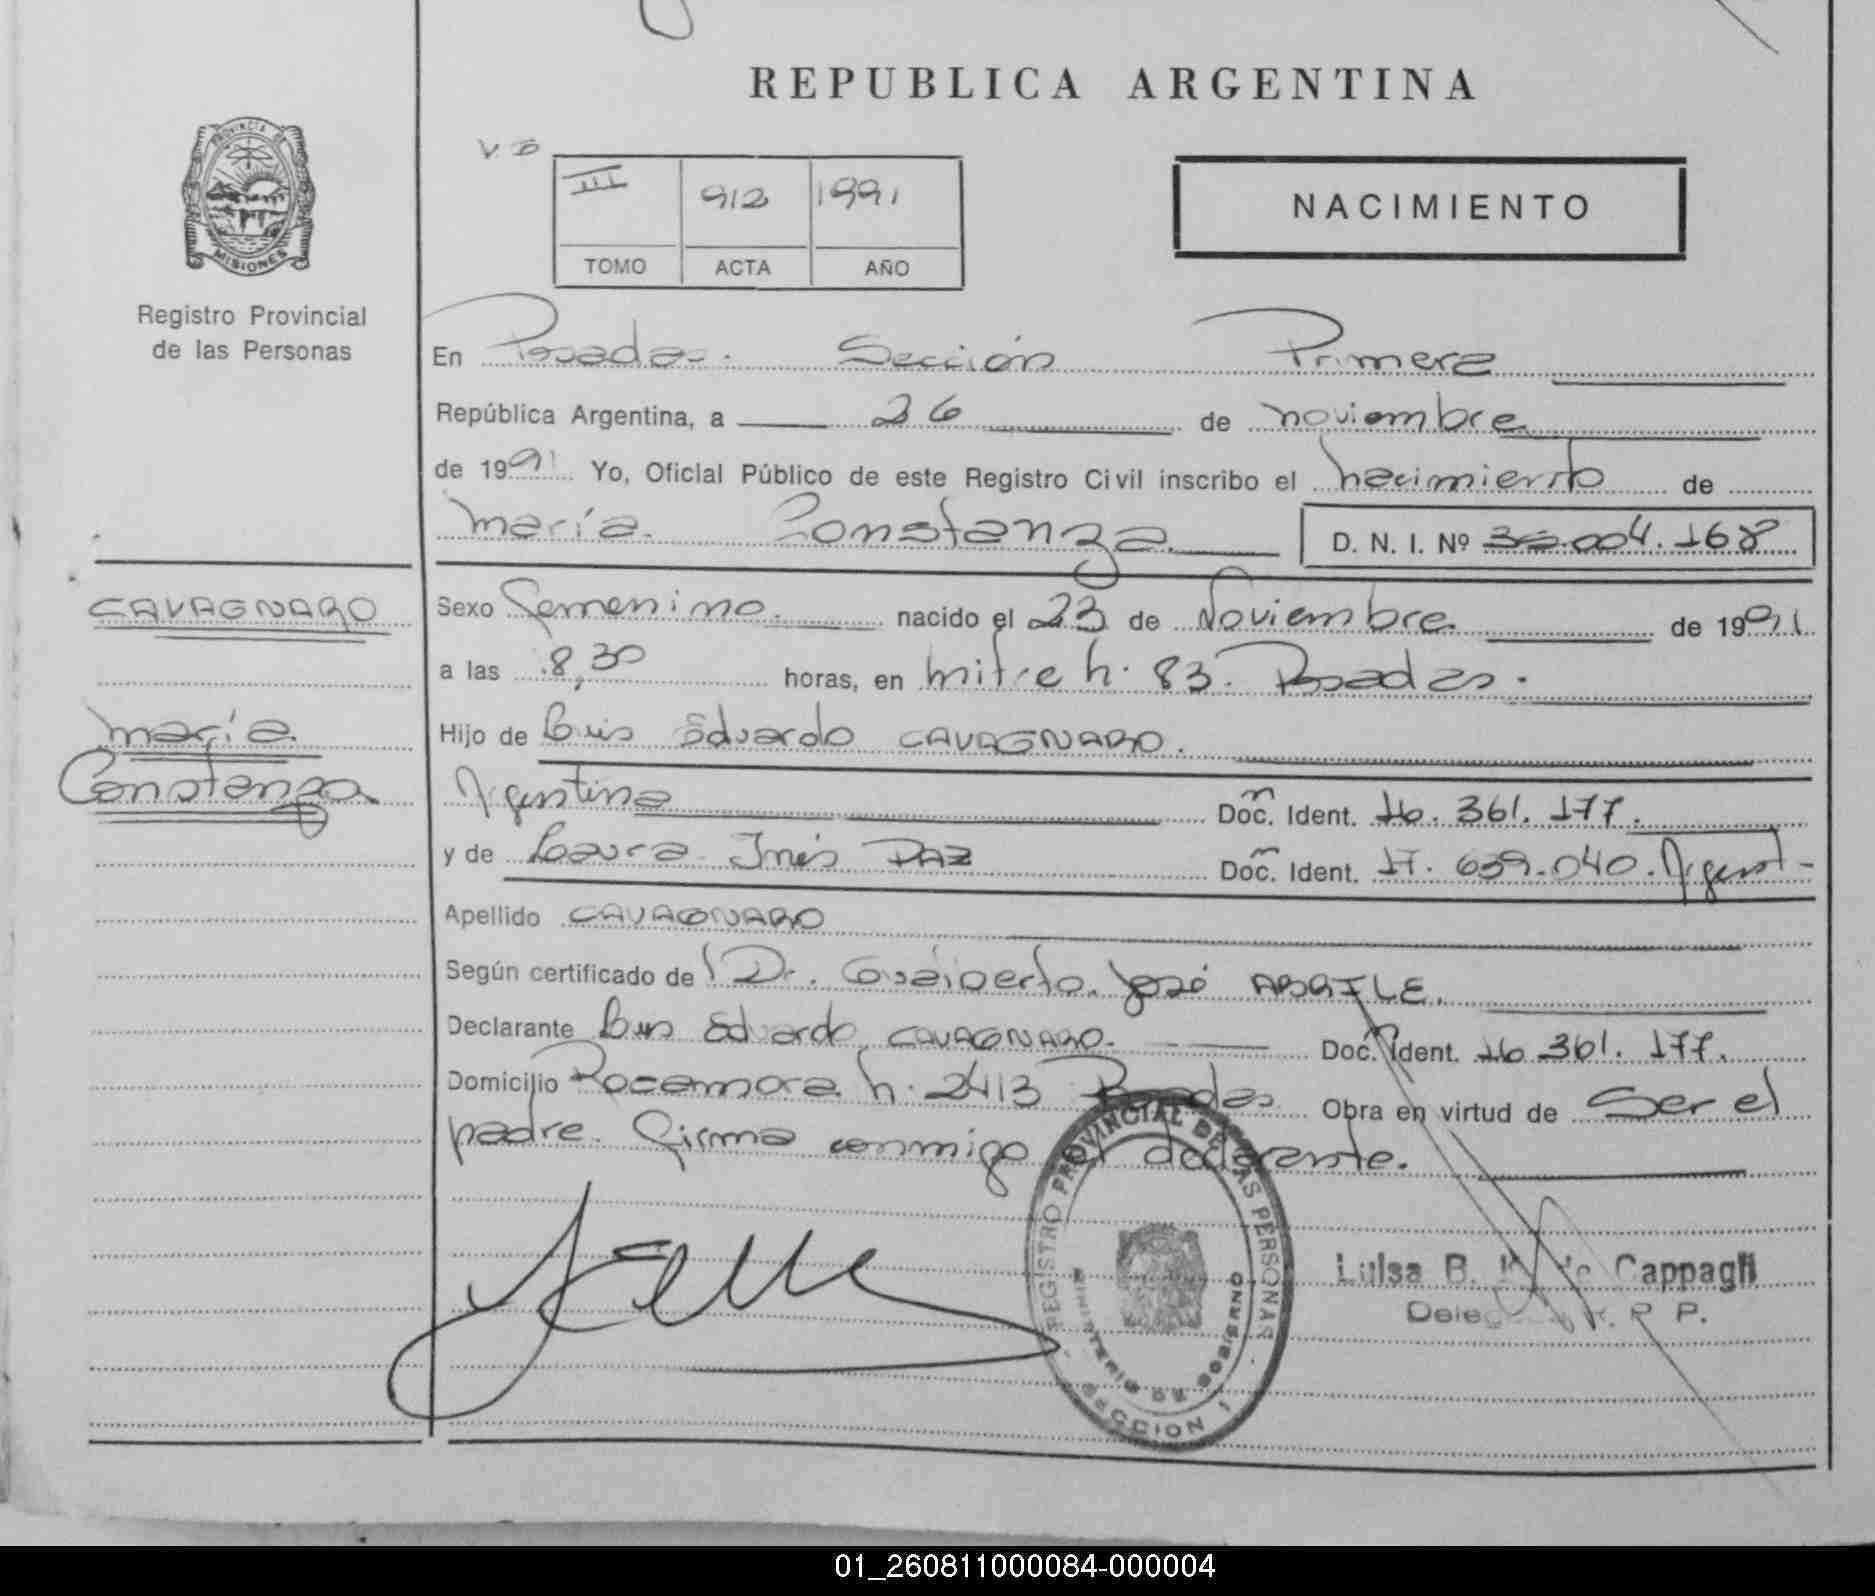 REPUBLICA ARGENTINA
PROVINCIA DE
MISIONES
Registro Provincial
de las Personas
V.B
III 912 1991
TOMO ACTA AÑO
NACIMIENTO
En Posadas. Sección Primera
República Argentina, a 26 de noviembre
de 1991 Yo, Oficial Público de este Registro Civil inscribo el nacimiento de
María Constanza D. N. I. Nº 36.004.168
CAVAGNARO
María
Constanza
Sexo Femenino. nacido el 23 de Noviembre. de 1991
a las 8,30 horas, en mitre n. 83. Posadas.
Hijo de Luis Eduardo CAVAGNARO.
Argentina Doc. Ident. 16.361.177.
y de Laura Inés PAZ Doc. Ident. 17.639.040. Argent-
Apellido CAVAGNARO
Según certificado de Dr. Gualberto José
Declarante Luis Eduardo CAVAGNARO. Doc. Ident. 16.361.177.
Domicilio Rocamora n. 2413 Posadas Obra en virtud de Ser el
padre. Firma conmigo el declarante.
REGISTRO PROVINCIAL DE LAS PERSONAS
MINISTERIO DE GOBIERNO
SECCION 1
Luisa B. de Cappagli
R. P.
01_260811000084-000004